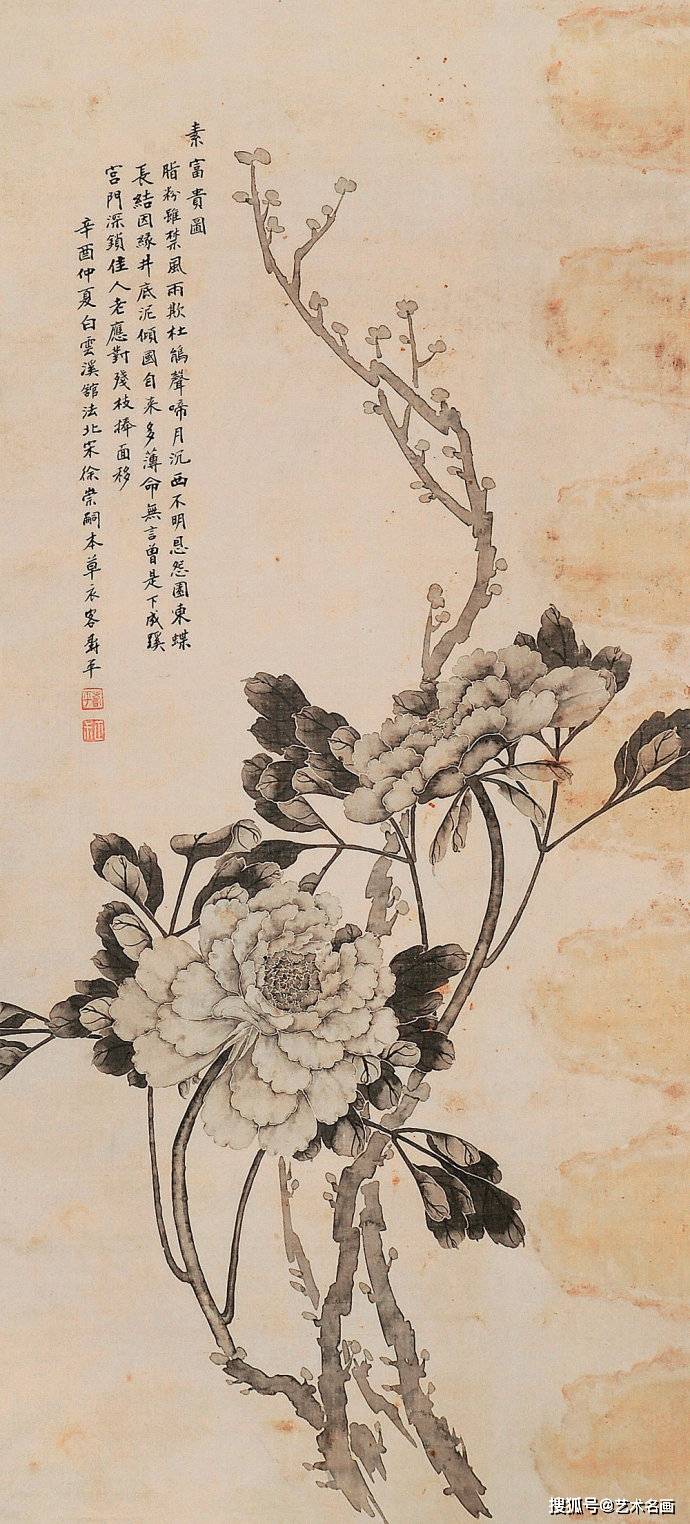 素富貴圖
脂粉雖禁風雨欺杜鵑聲啼月沉西不明恩怨園東蝶
長結因緣井底泥傾國自来多薄命無言曾是下成蹊
宮門深鎖佳人老應對殘枝捧面移
辛酉仲夏白雲溪館法北宋徐崇嗣本草衣客壽平
搜狐号@艺术名画